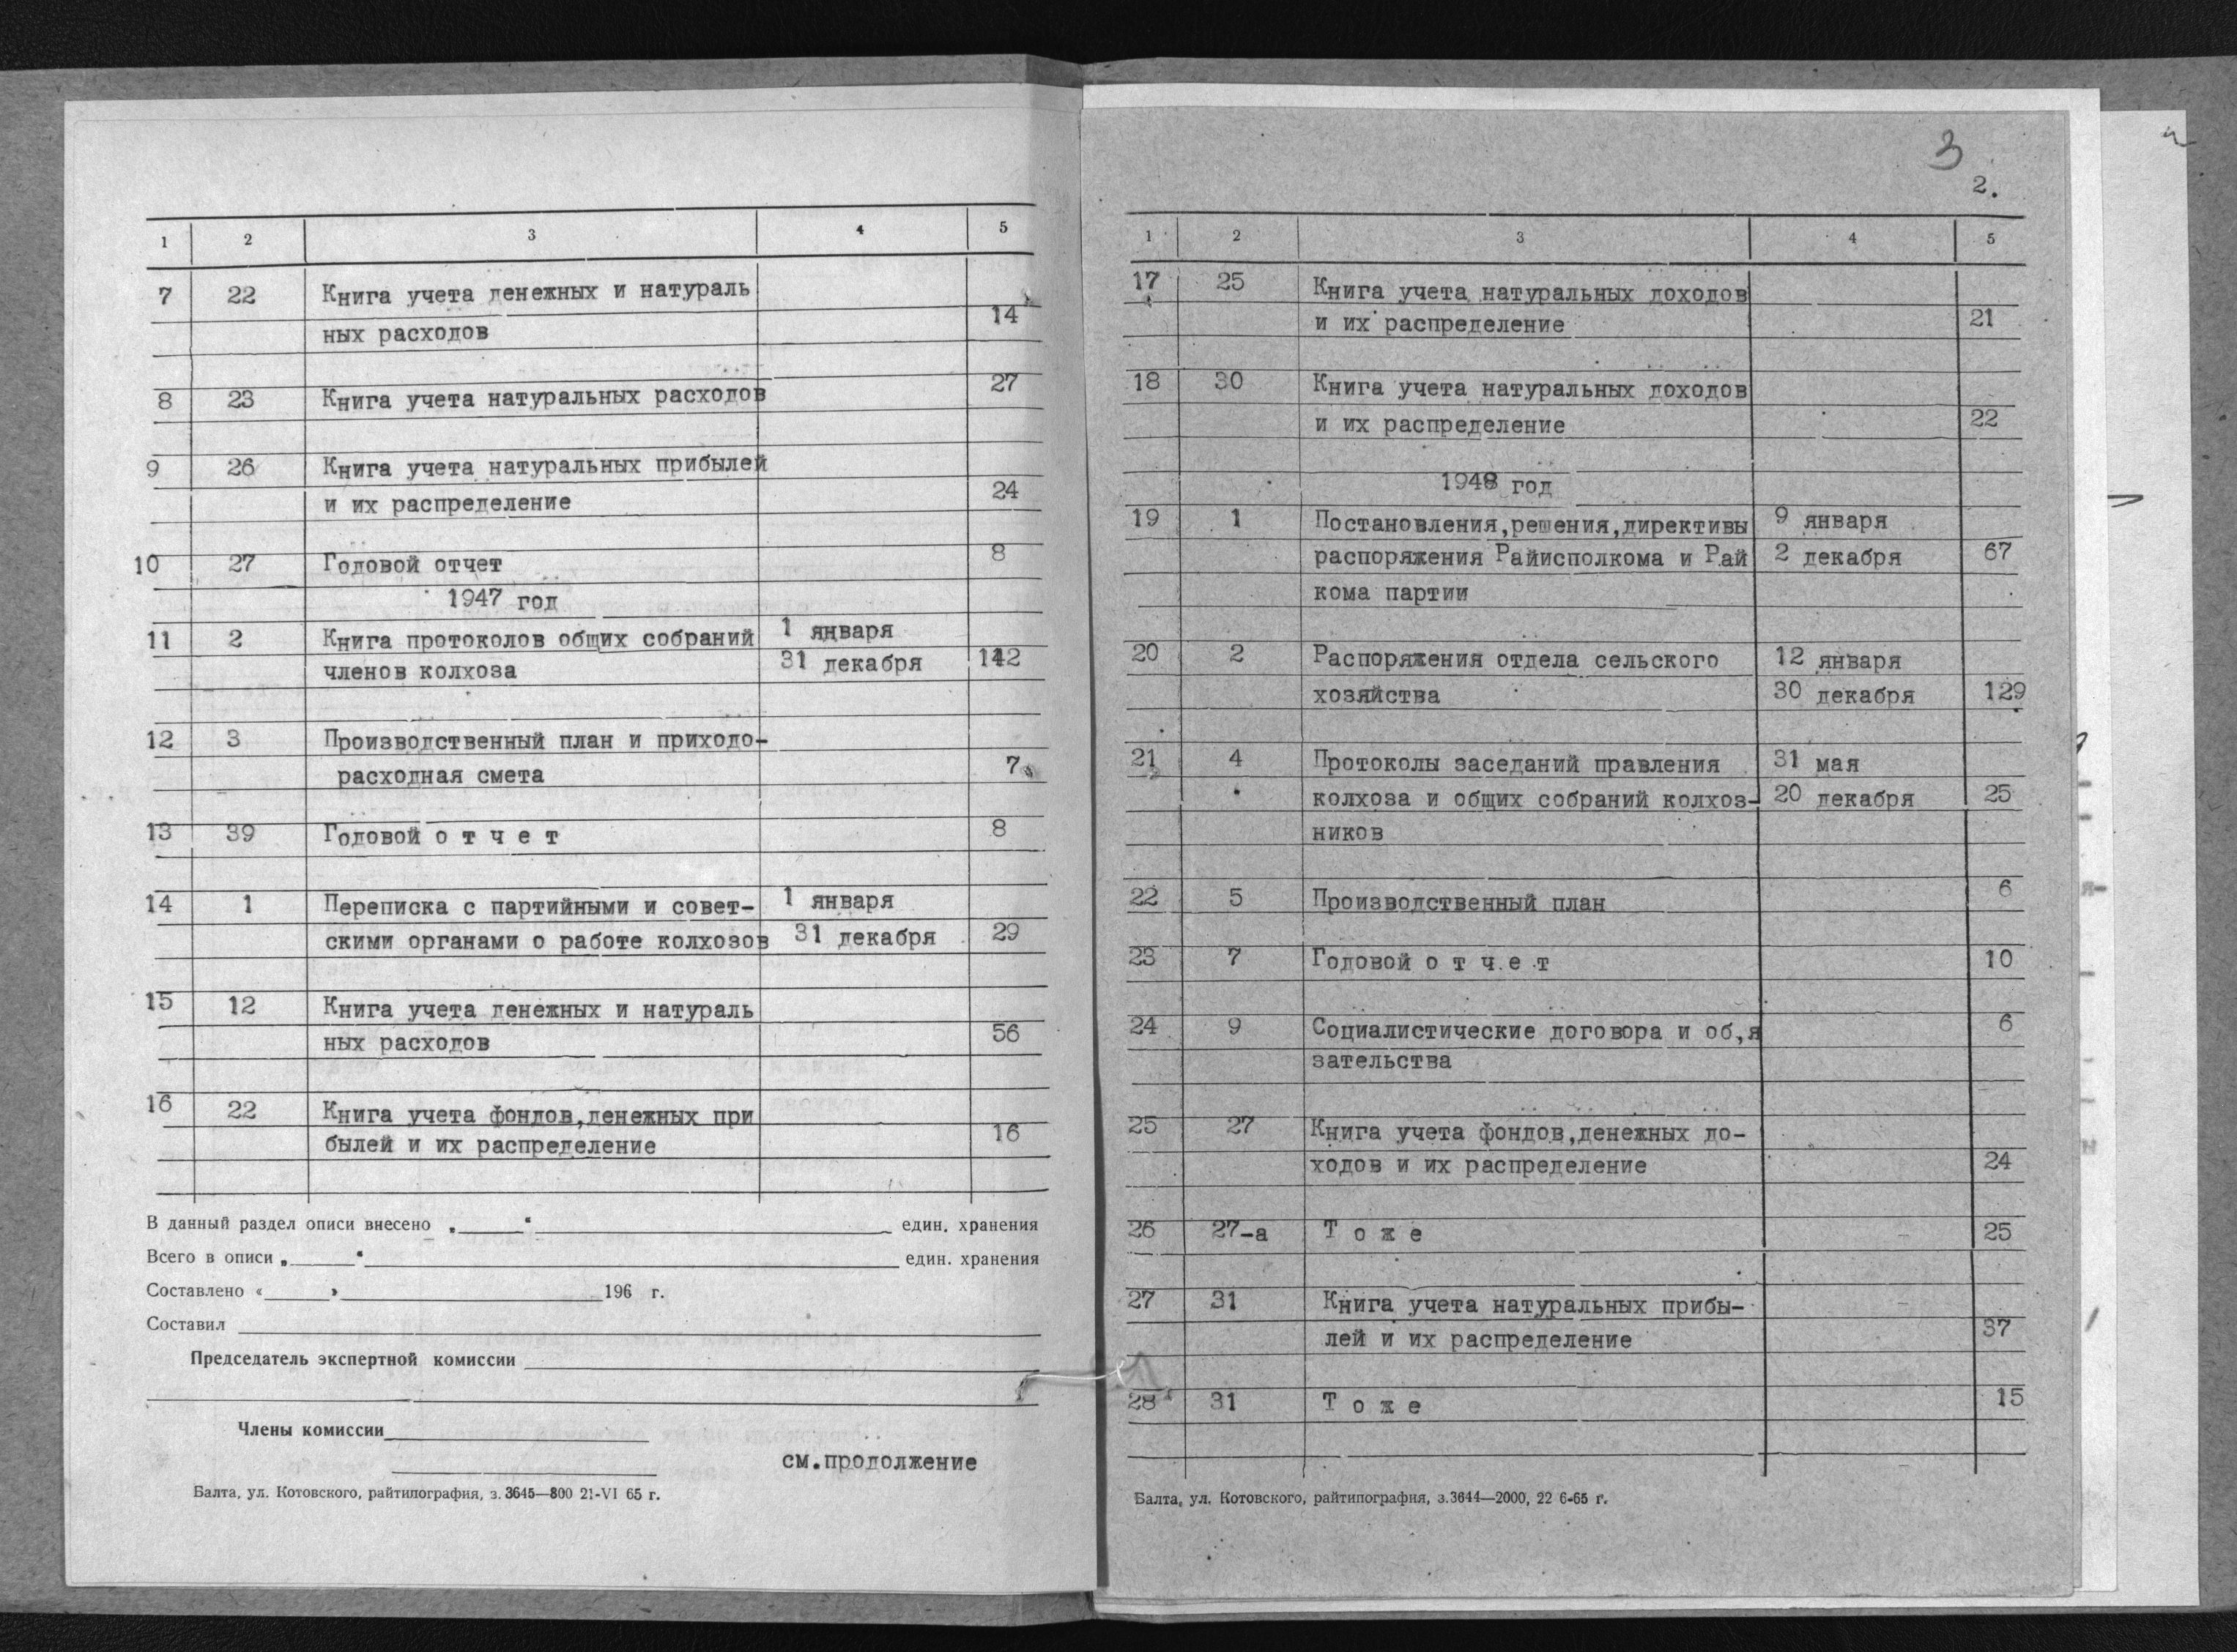 1 2 3 4 5
7 22 Книга учета денежных и натураль
ных расходов 14
8 23 Книга учета натуральных расходов 27
9 26 Книга учета натуральных прибылей
и их распределение 24
10 27 Годовой отчет 8
1947 год
11 2 Книга протоколов общих собраний 1 января
членов колхоза 31 декабря 142
12 3 Производственный план и приходо-
расходная смета 7
13 39 Годовой о т ч е т 8
14 1 Переписка с партийными и совет- 1 января
скими органами о работе колхозов 31 декабря 29
15 12 Книга учета денежных и натураль
ных расходов 56
16 22 Книга учета фондов,денежных при
былей и их распределение 16
В данный раздел описи внесено „ “ един. хранения
Всего в описи „ “ един. хранения
Составлено « » 196 г.
Составил
Председатель экспертной комиссии
Члены комиссии
см.продолжение
Балта, ул. Котовского, райтипография, з. 3645—800 21-VI 65 г.
3
2.
1 2 3 4 5
17 25 Книга учета натуральных доходов
и их распределение 21
18 30 Книга учета натуральных доходов
и их распределение 22
1948 год
19 1 Постановления,решения,директивы 9 января
распоряжения Райисполкома и Рай 2 декабря 67
кома партии
20 2 Распоряжения отдела сельского 12 января
хозяйства 30 декабря 129
21 4 Протоколы заседаний правления 31 мая
колхоза и общих собраний колхоз- 20 декабря 25
ников
22 5 Производственный план 6
23 7 Годовой о т ч е т 10
24 9 Социалистические договора и об,я 6
зательства
25 27 Книга учета фондов,денежных до-
ходов и их распределение 24
26 27-а Т о ж е 25
27 31 Книга учета натуральных прибы-
лей и их распределение 37
28 31 Т о ж е 15
Балта, ул. Котовского, райтипография, з.3644—2000, 22 6-65 г.